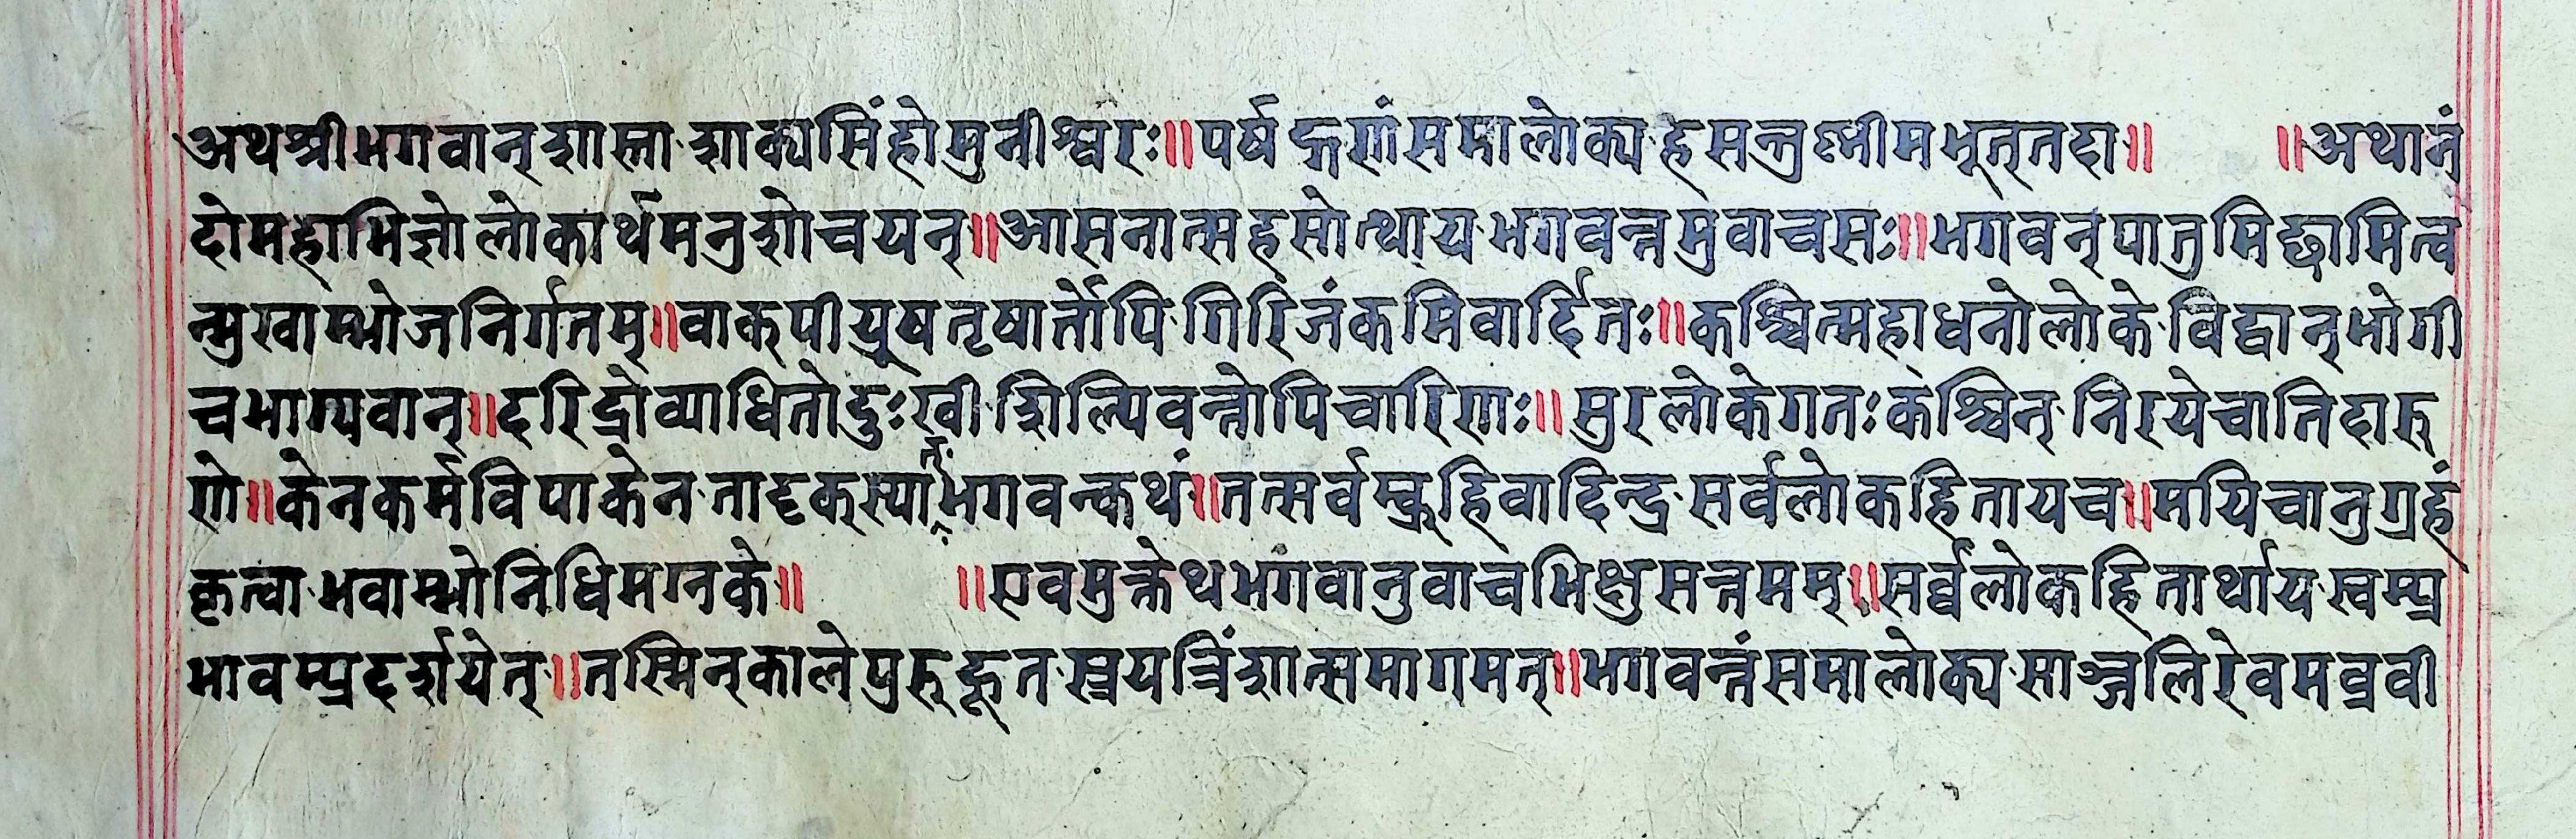 अथश्रीभगवान्शास्ता·शाक्यसिंहोमुनीश्वरः॥पर्षद्गणंसमालोक्य·हसन्रश्मीमभूत्तदा॥ ॥अथानं
दोमहाभिज्ञोलोकार्थमनुशोचयन्॥आसनात्सहसोत्थाय·भगवन्तमुवाचसः॥भगवन्पातुमिच्छामित्व
न्मुखाम्भोजनिर्गतम्॥वाक्पीयूषतृषार्तोपि·गिरिजंकमिवार्दितः॥कश्चित्महाधनोलोके·विद्वान्भोगी
चभाग्यवान्॥दरिद्रोव्याधितोदुःखी·शिल्पिवन्तोपिचारिणः॥सुरलोकेगतःकश्चित्·निरयेचातिदारु
णे॥केनकर्मविपाकेन·तादृक्स्याभगवन्कथं॥तत्सर्वम्ब्रूहिवादिन्द्र·सर्वलोकहितायच॥मयिचानुग्रहं
कृत्वा·भवाम्भोनिधिमग्नके॥ ॥एवमुक्तेथभगवानुवाचभिक्षुसत्तमम्॥सर्व्वलोकहितार्थाय·स्वम्प्र
भावम्प्रदर्शयेत्॥तस्मिन्कालेपुरुहूत·स्त्रयत्रिंशात्समागमत्॥भगवन्तंसमालोक्य·साञ्जलिरेवमब्रवी